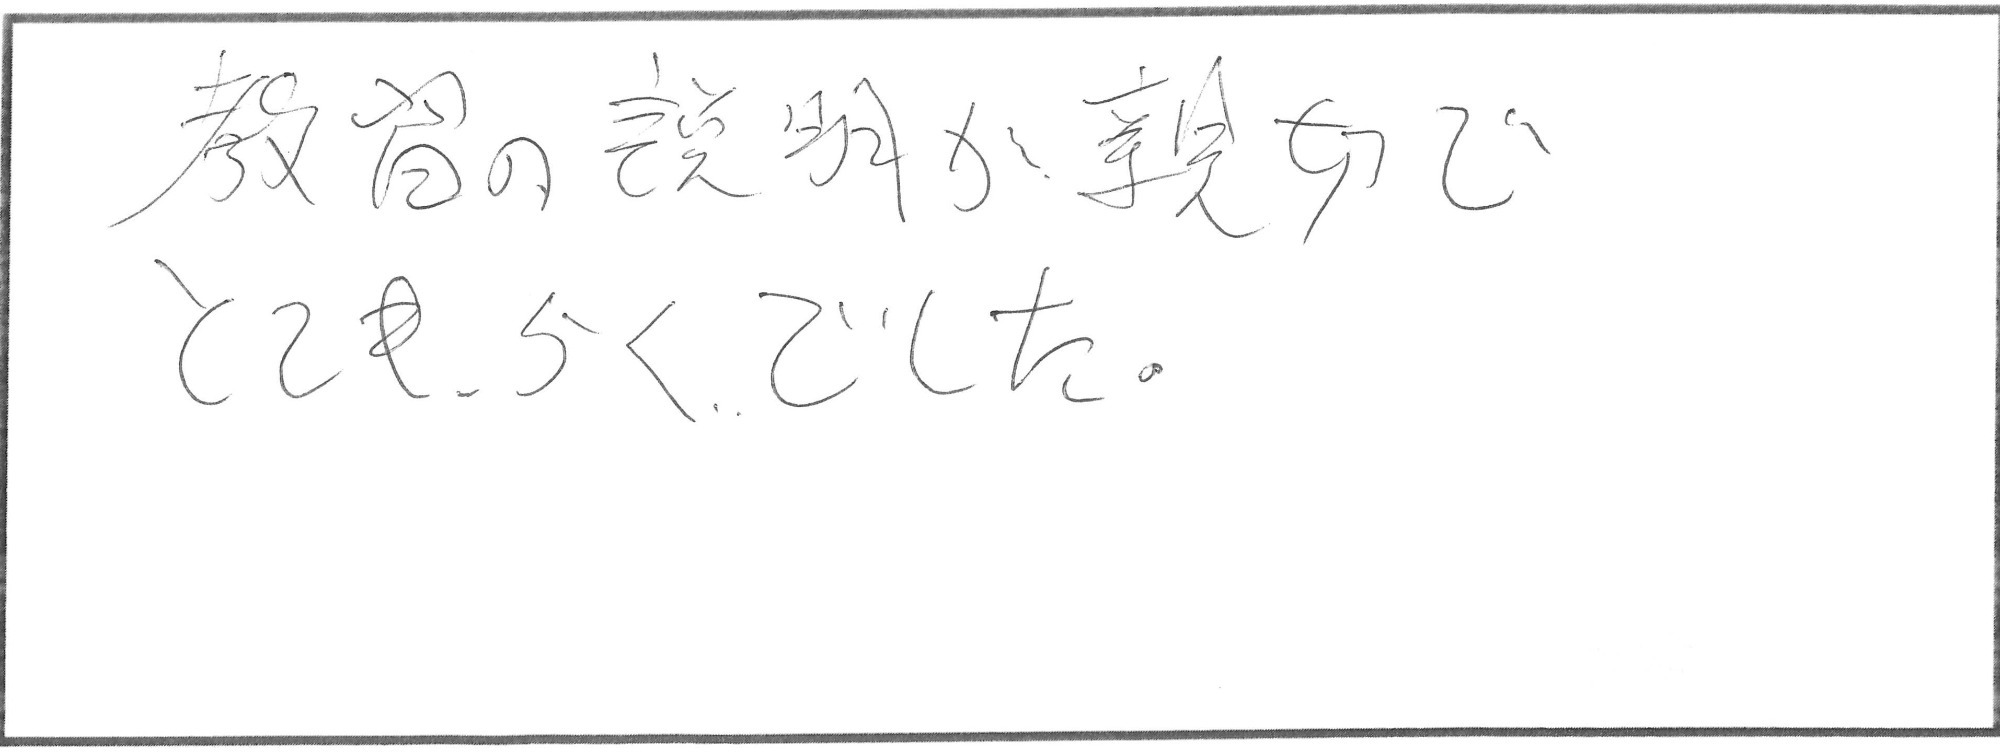 教習の説明が親切で
とてもらくでした。